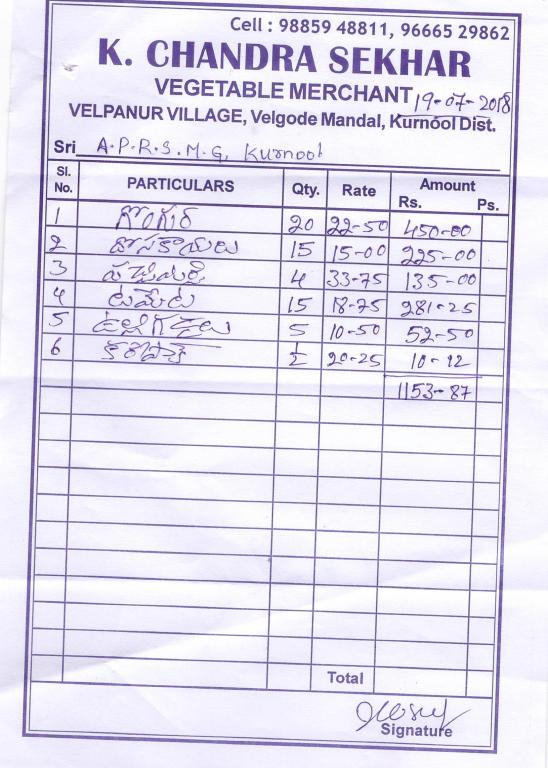 Cell : 98859 48811, 96665 29862
K. CHANDRA SEKHAR
VEGETABLE MERCHANT 19-07-2018
VELPANUR VILLAGE, Velgode Mandal, Kurnool Dist.
Sri A.P.R.S.M.G, Kurnool
Sl. No. PARTICULARS Qty. Rate Amount Rs. Ps.
1 గోంగుర 20 22-50 450-00
2 దోసకాయలు 15 15-00 225-00
3 పచ్చిమిర్చి 4 33-75 135-00
4 టమేట 15 18-75 281-25
5 ఉల్లిగడ్డలు 5 10-50 52-50
6 కరివేపాక్ ½ 20-25 10-12
1153-87
Total
Signature